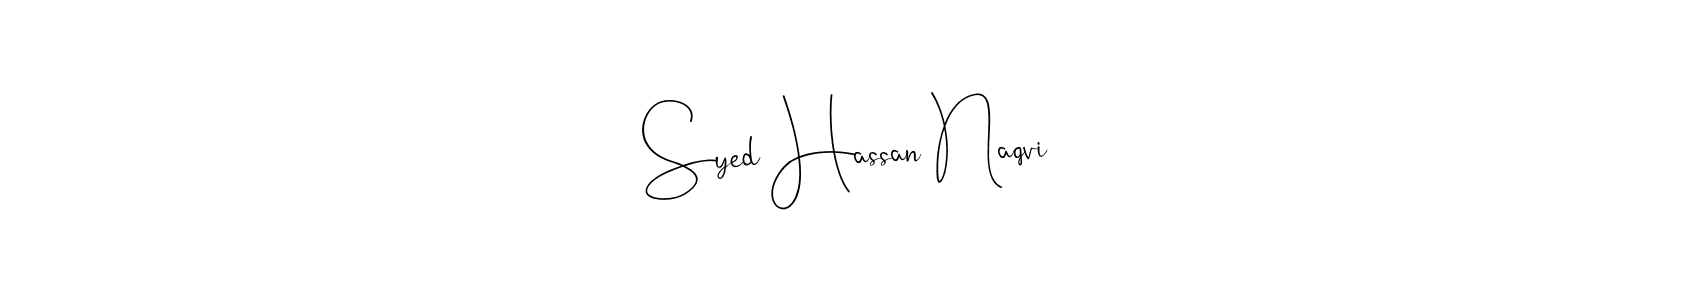 Syed Hassan Naqvi